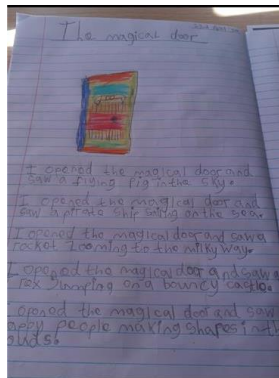 The magical door
I opened the magical door and
saw a flying pig in the sky.
I opened the magical door and
saw a pirate ship sailing on the sea.
I opened the magical door and saw a
rocket zooming to the milky way.
I opened the magical door and saw a
jumping on a bouncy castle.
opened the magical door and saw
people making shapes in th